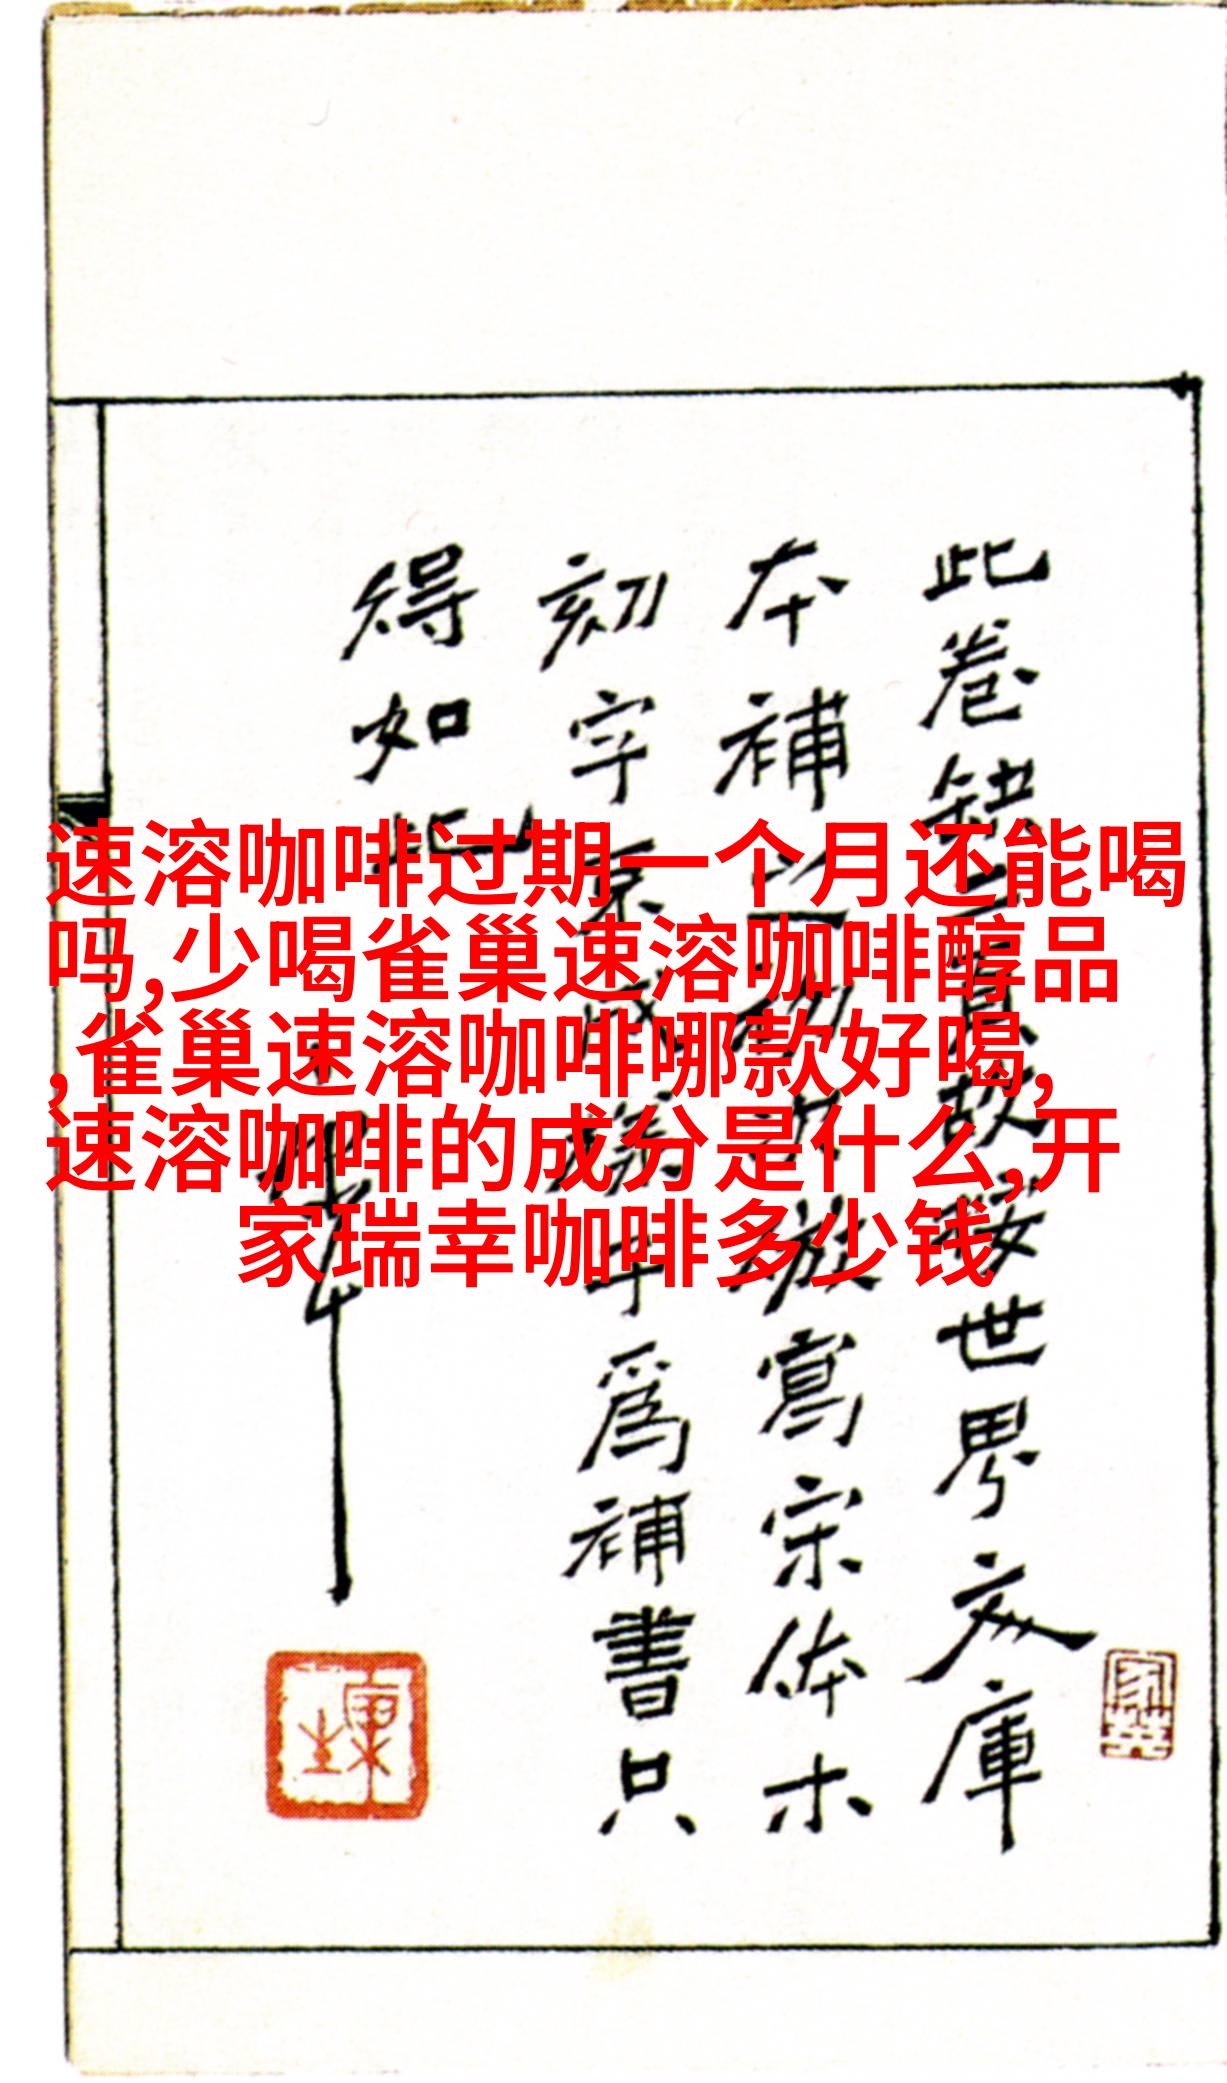 速溶咖啡过期一个月还能喝
吗,少喝雀巢速溶咖啡醇品
,雀巢速溶咖啡哪款好喝,
速溶咖啡的成分是什么,开
家瑞幸咖啡多少钱
此卷缺二頁故按世界文庫
本補以初放寫宗体木
刻字京為補書只
得如此